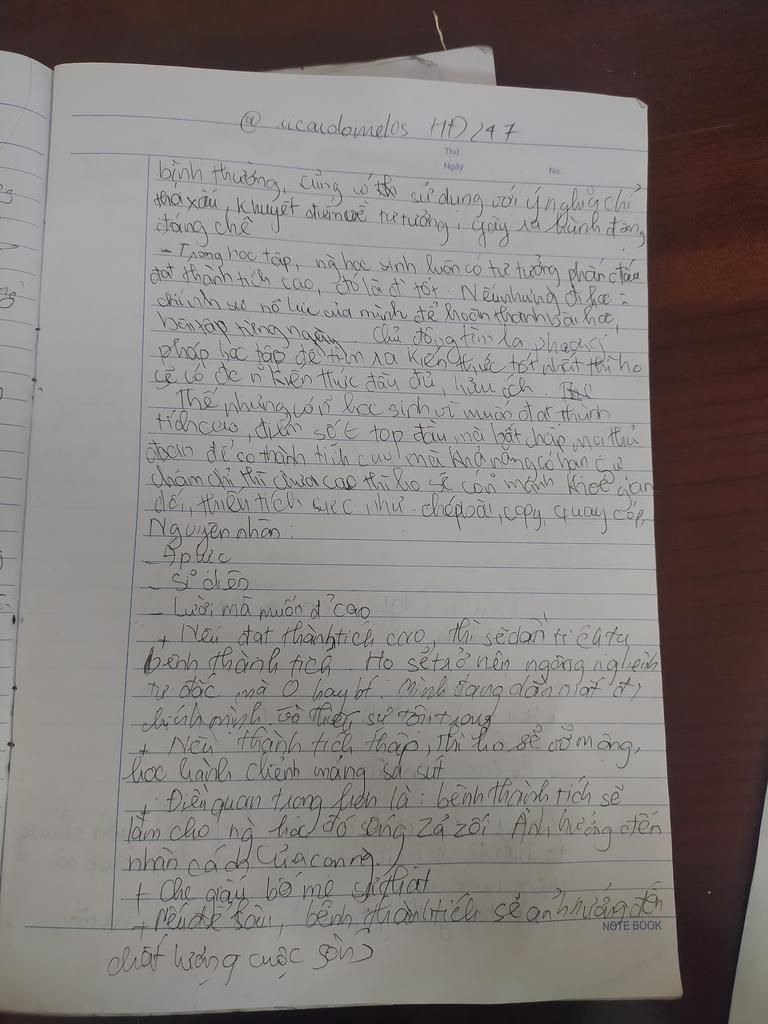 @ ucaulomelos HĐ/47
Thứ
Ngày No.
bình thường, cũng có thể sử dụng với ý nghĩa chỉ
thái xấu, khuyết điểm về tư tưởng, gây ra hành động
đáng chê
- Trong học tập, ng học sinh luôn có tư tưởng phấn đấu
đạt thành tích cao, đó là đ tốt. Nếu nhưng đi học =
chính sự nỗ lực của mình để hoàn thành bài học,
bài tập từng ngày. Chủ động tìm ra phương
pháp học tập để tìm ra kiến thức tốt nhất thì họ
sẽ có đc n kiến thức đầy đủ, hữu ích.
Thế nhưng có n học sinh vì muốn đạt thành
tích cao, điểm số t top đầu mà bất chấp mọi thủ
đoạn để có thành tích cao mà khả năng có hạn cứ
chăm chỉ thì chưa cao thì họ sẽ còn mánh khoé gian
dối, thiếu tích cực như chép bài, copy, quay cóp,
Nguyên nhân:
- Áp lực
- Sĩ diện
- Lười mà muốn đ cao
+ Nếu đạt thành tích cao, thì sẽ dẫn
bệnh thành tích. Họ sẽ trở nên ngông nghênh
tự đắc mà 0 hay bt. Mình đang dần mất đi
chính mình và thiếu sự tôn trọng
+ Nếu thành tích thấp, thì họ sẽ vỡ mộng,
học hành chểnh mảng sa sút
+ Điều quan trọng hơn là: bệnh thành tích sẽ
làm cho ng học đó sống zả zối. Ảnh hưởng đến
nhân cách của con ng.
+ Che giấu bố mẹ sự thật
+ Nếu để lâu, bệnh thành tích sẽ ảnh hưởng đến
NOTE BOOK
chất lượng cuộc sống